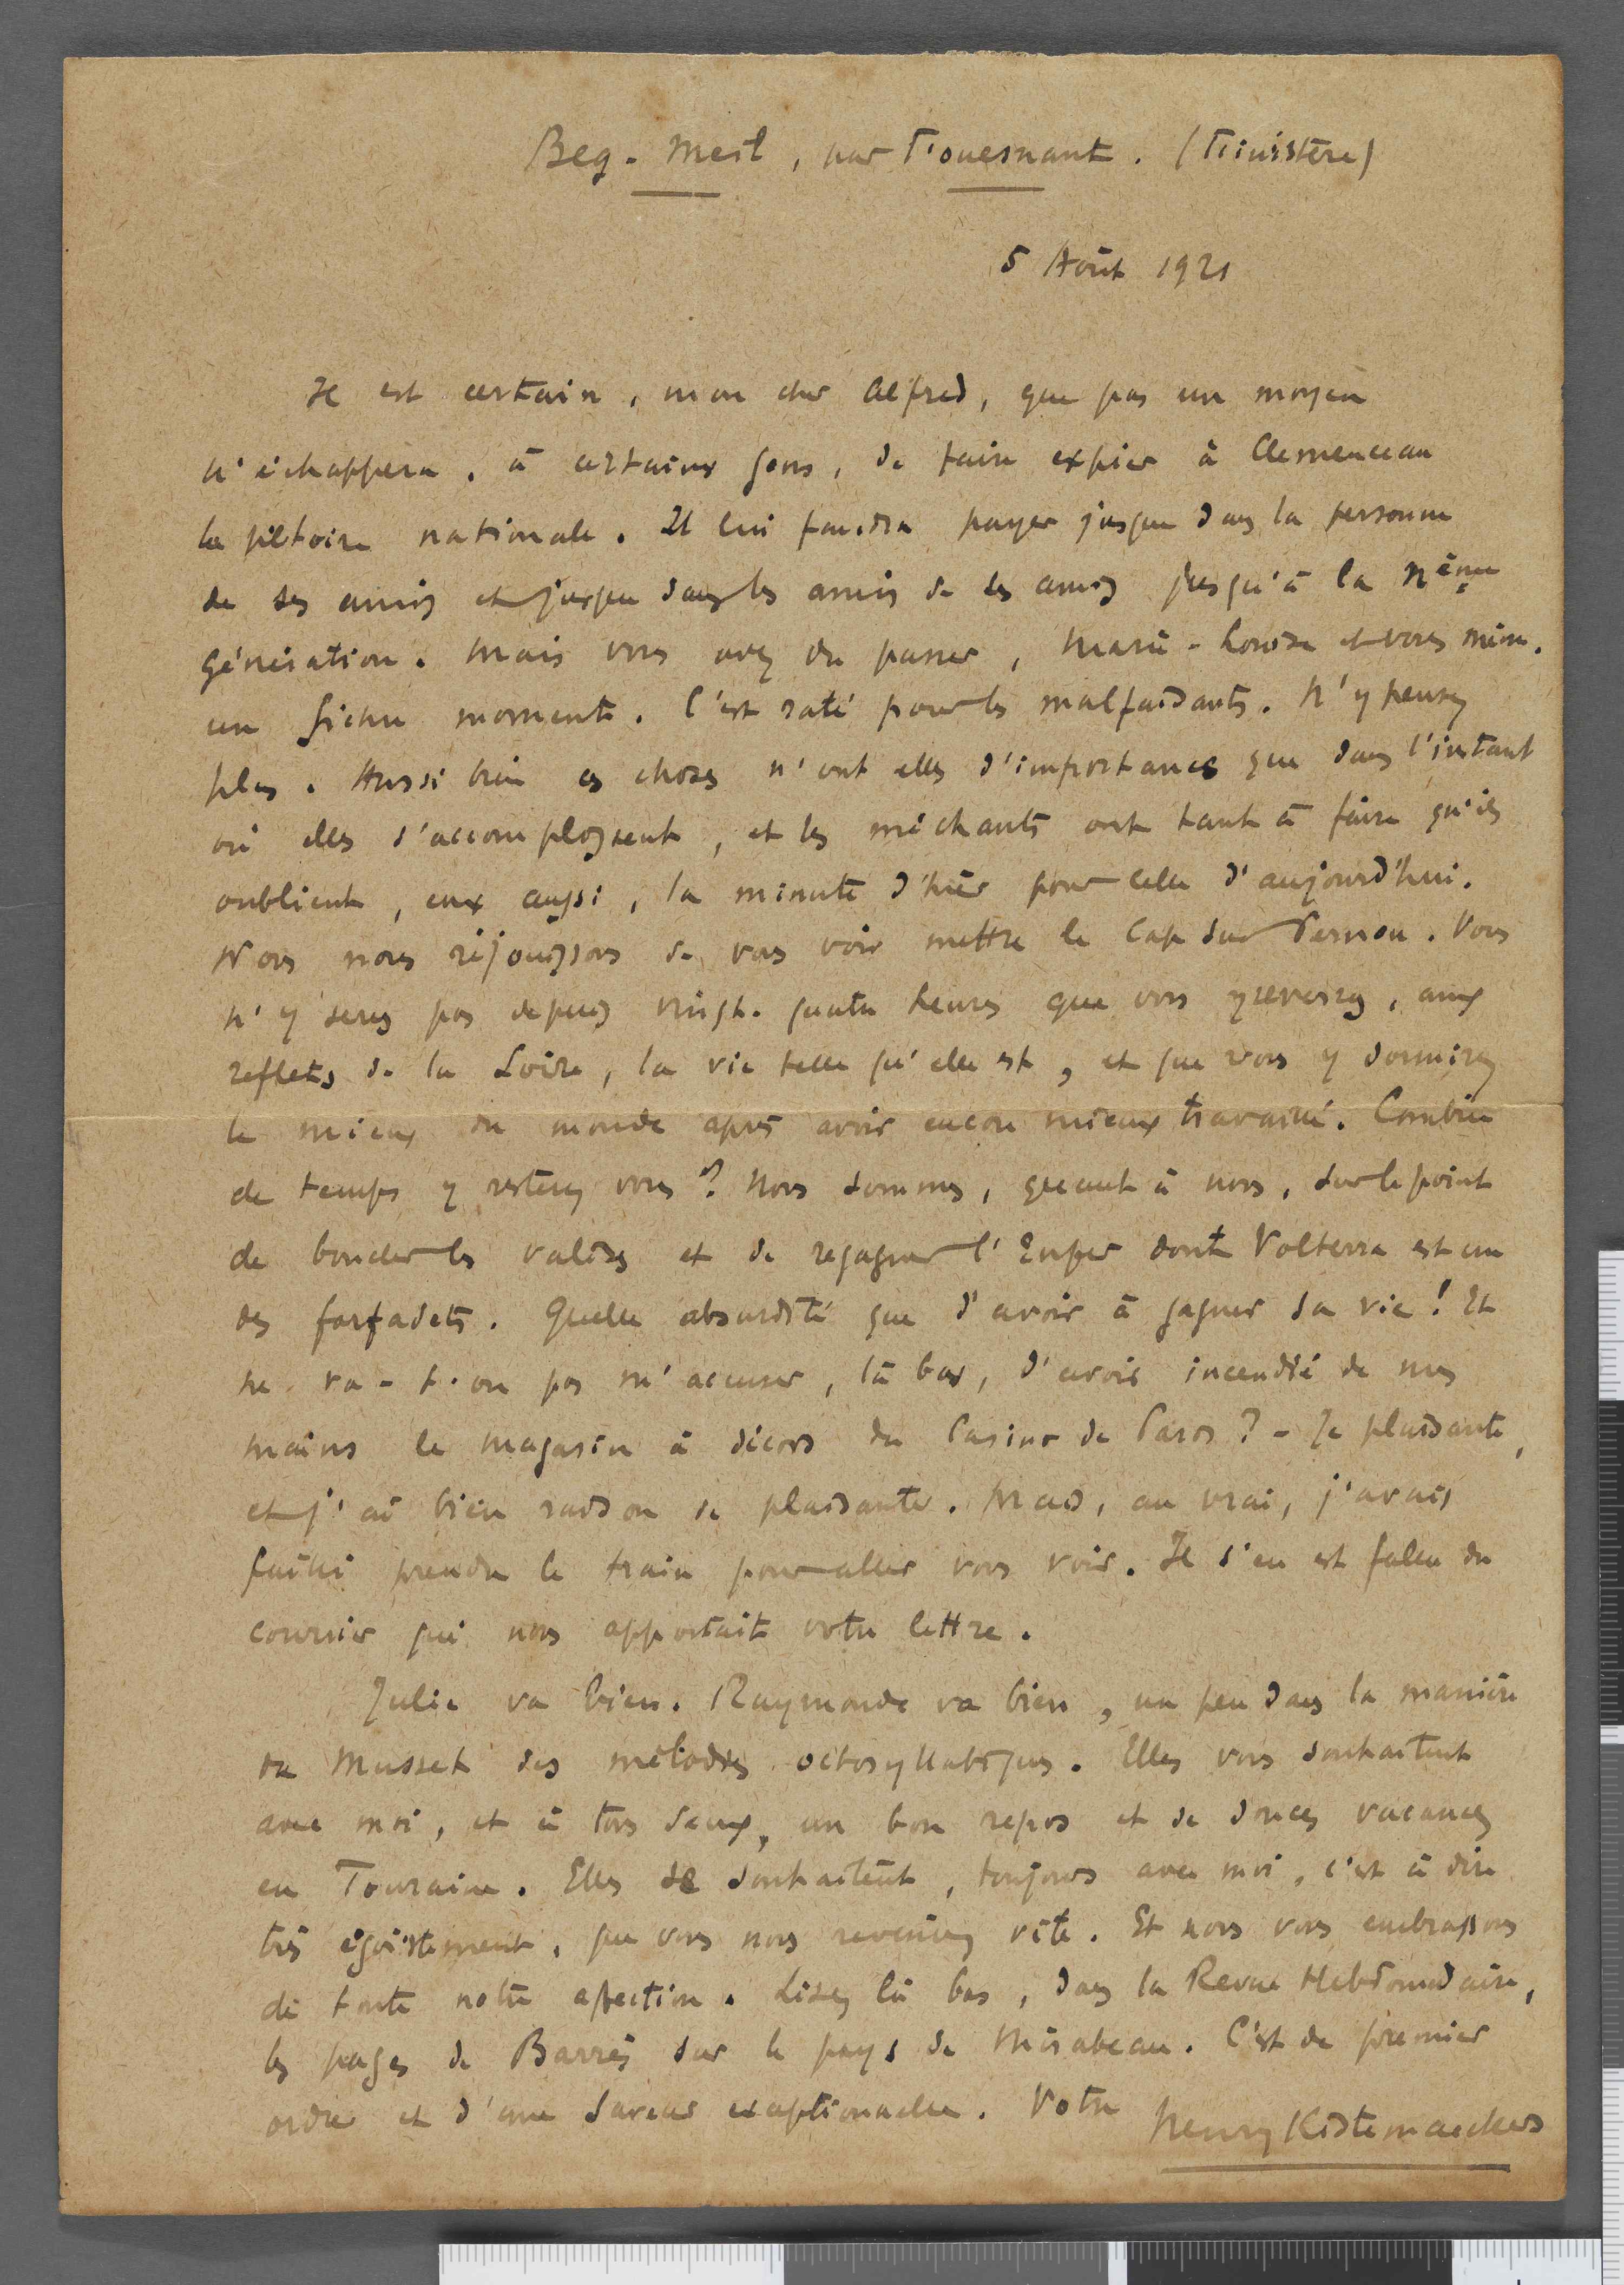 Beg-Meil, par Fouesnant. (Finistère)
5 Août 1921
Il est certain, mon cher Alfred, que pas un moyen
n'échappera, à certains gens, de faire expier à Clemenceau
la victoire nationale. Il lui faudra payer jusque dans la personne
de ses amis et jusque dans les amis de ses amis jusqu'à la nème
génération. Mais vous avez dû passer, Marie-Louise et vous même,
un fichu moment. C'est raté pour les malfaisants. N'y pensez
plus. Aussi bien ces choses n'ont elles d'importance que dans l'instant
où elles s'accomplissent, et les méchants ont tant à faire qu'ils
oublient, eux aussi, la minute d'hier pour celle d'aujourd'hui.
Nous nous réjouissons de vous voir mettre le Cap sur Vernou. Vous
n'y serez pas depuis vingt-quatre heures que vous y reverrez, aux
reflets de la Loire, la vie telle qu'elle est, et que vous y dormirez
le mieux du monde après avoir encore mieux travaillé. Combien
de temps y resterez vous? Nous sommes, quant à nous, sur le point
de boucler les valises et de regagner l'Enfer dont Volterra est un
des farfadets. Quelle absurdité que d'avoir à gagner sa vie! Et
ne va-t-on pas m'accuser, là bas, d'avoir incendié de mes
mains le magasin à décors du Casino de Paris? - Je plaisante,
et j'ai bien raison de plaisanter. Mais, au vrai, j'avais
failli prendre le train pour aller vous voir. Il s'en est fallu du
courrier qui nous apportait votre lettre.
Julie va bien. Raymonde va bien, un peu dans la manière
du Musset des mélodies octosyllabiques. Elles vous souhaitent
avec moi, et à tous deux, un bon repos et de douces vacances
en Touraine. Elles se souhaitent, toujours avec moi, c'est à dire
très égoïstement, que vous nous reveniez vite. Et nous vous embrassons
de toute notre affection. Lisez là bas, dans la Revue Hebdomadaire,
les pages de Barrès sur le pays de Mirabeau. C'est de premier
ordre et d'une saveur exceptionnelle. Votre
Henry Kistemaeckers